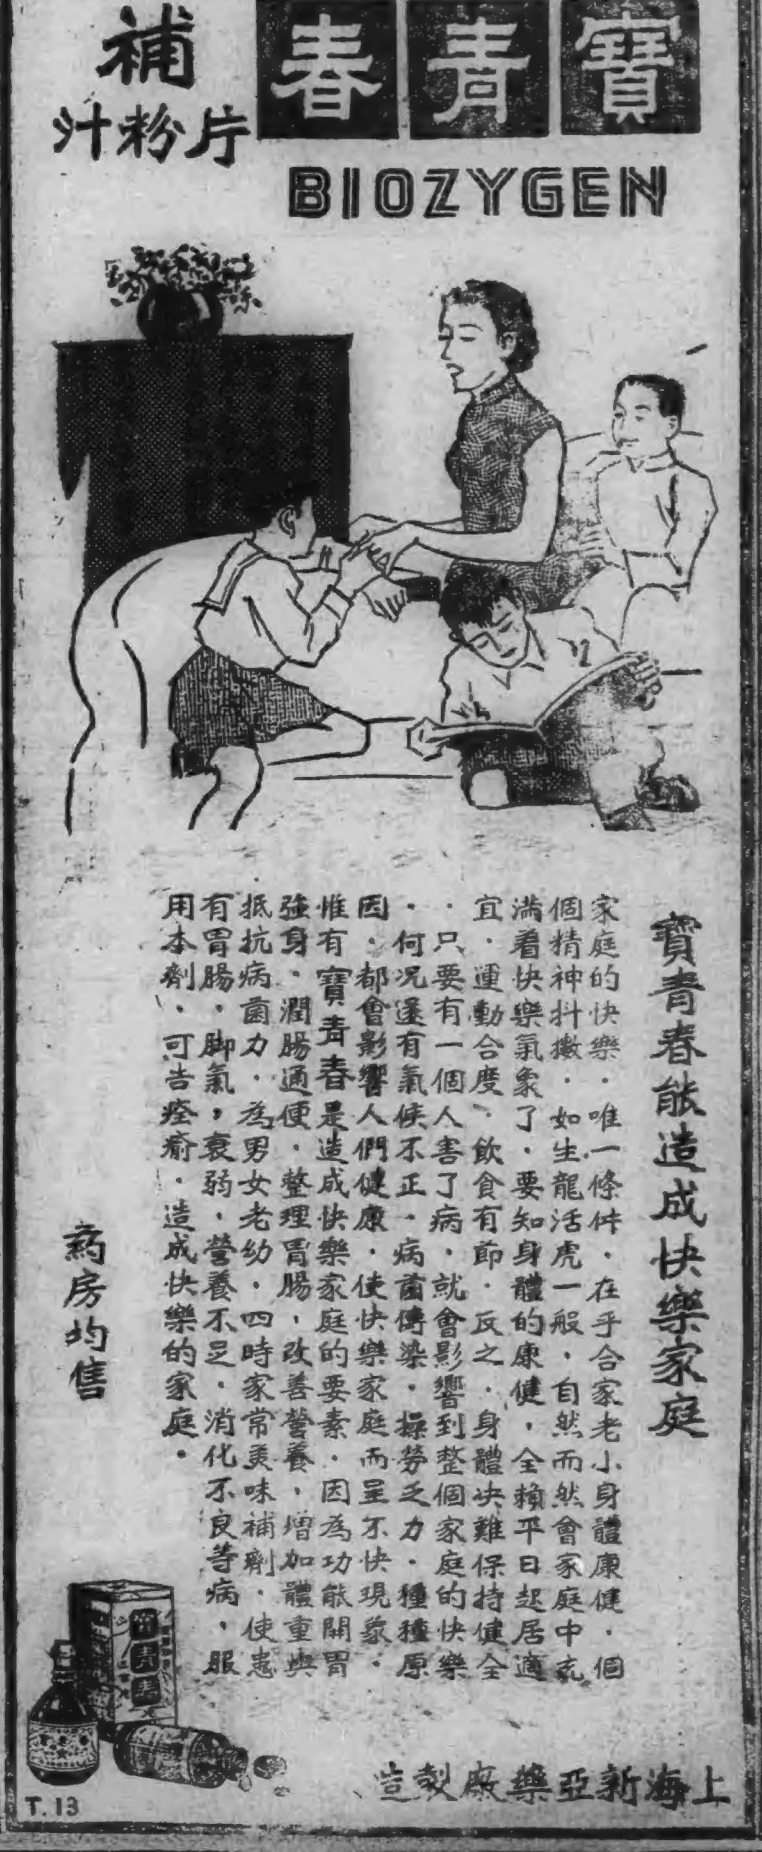 寶青春
補
片粉汁
BIOZYGEN
寶青春能造成快樂家庭
家庭的快樂．唯一條件．在乎合家老小身體康健．個
個精神抖擻．如生龍活虎一般．自然而然會家庭中充
滿着快樂氣象了．要知身體的康健．全賴平日起居適
宜．運動合度、飲食有節．反之．身體决難保持健全
．只要有一個人害了病．就會影響到整個家庭的快樂
．何况還有氣候不正．病菌傳染．操勞乏力．種種原
因．都會影響人們健康．使快樂家庭而呈不快現象．
惟有寶青春是造成快樂家庭的要素．因為功能開胃
強身．潤腸通便．整理胃腸．改善營養．增加體重與
抵抗病菌力．為男女老幼．四時家常美味補劑．使患
有胃腸．脚氣．衰弱．營養不足．消化不良等病．服
用本劑．可告痊瘉．造成快樂的家庭．
葯房均售
寶青春
上海新亞藥廠製造
T.13